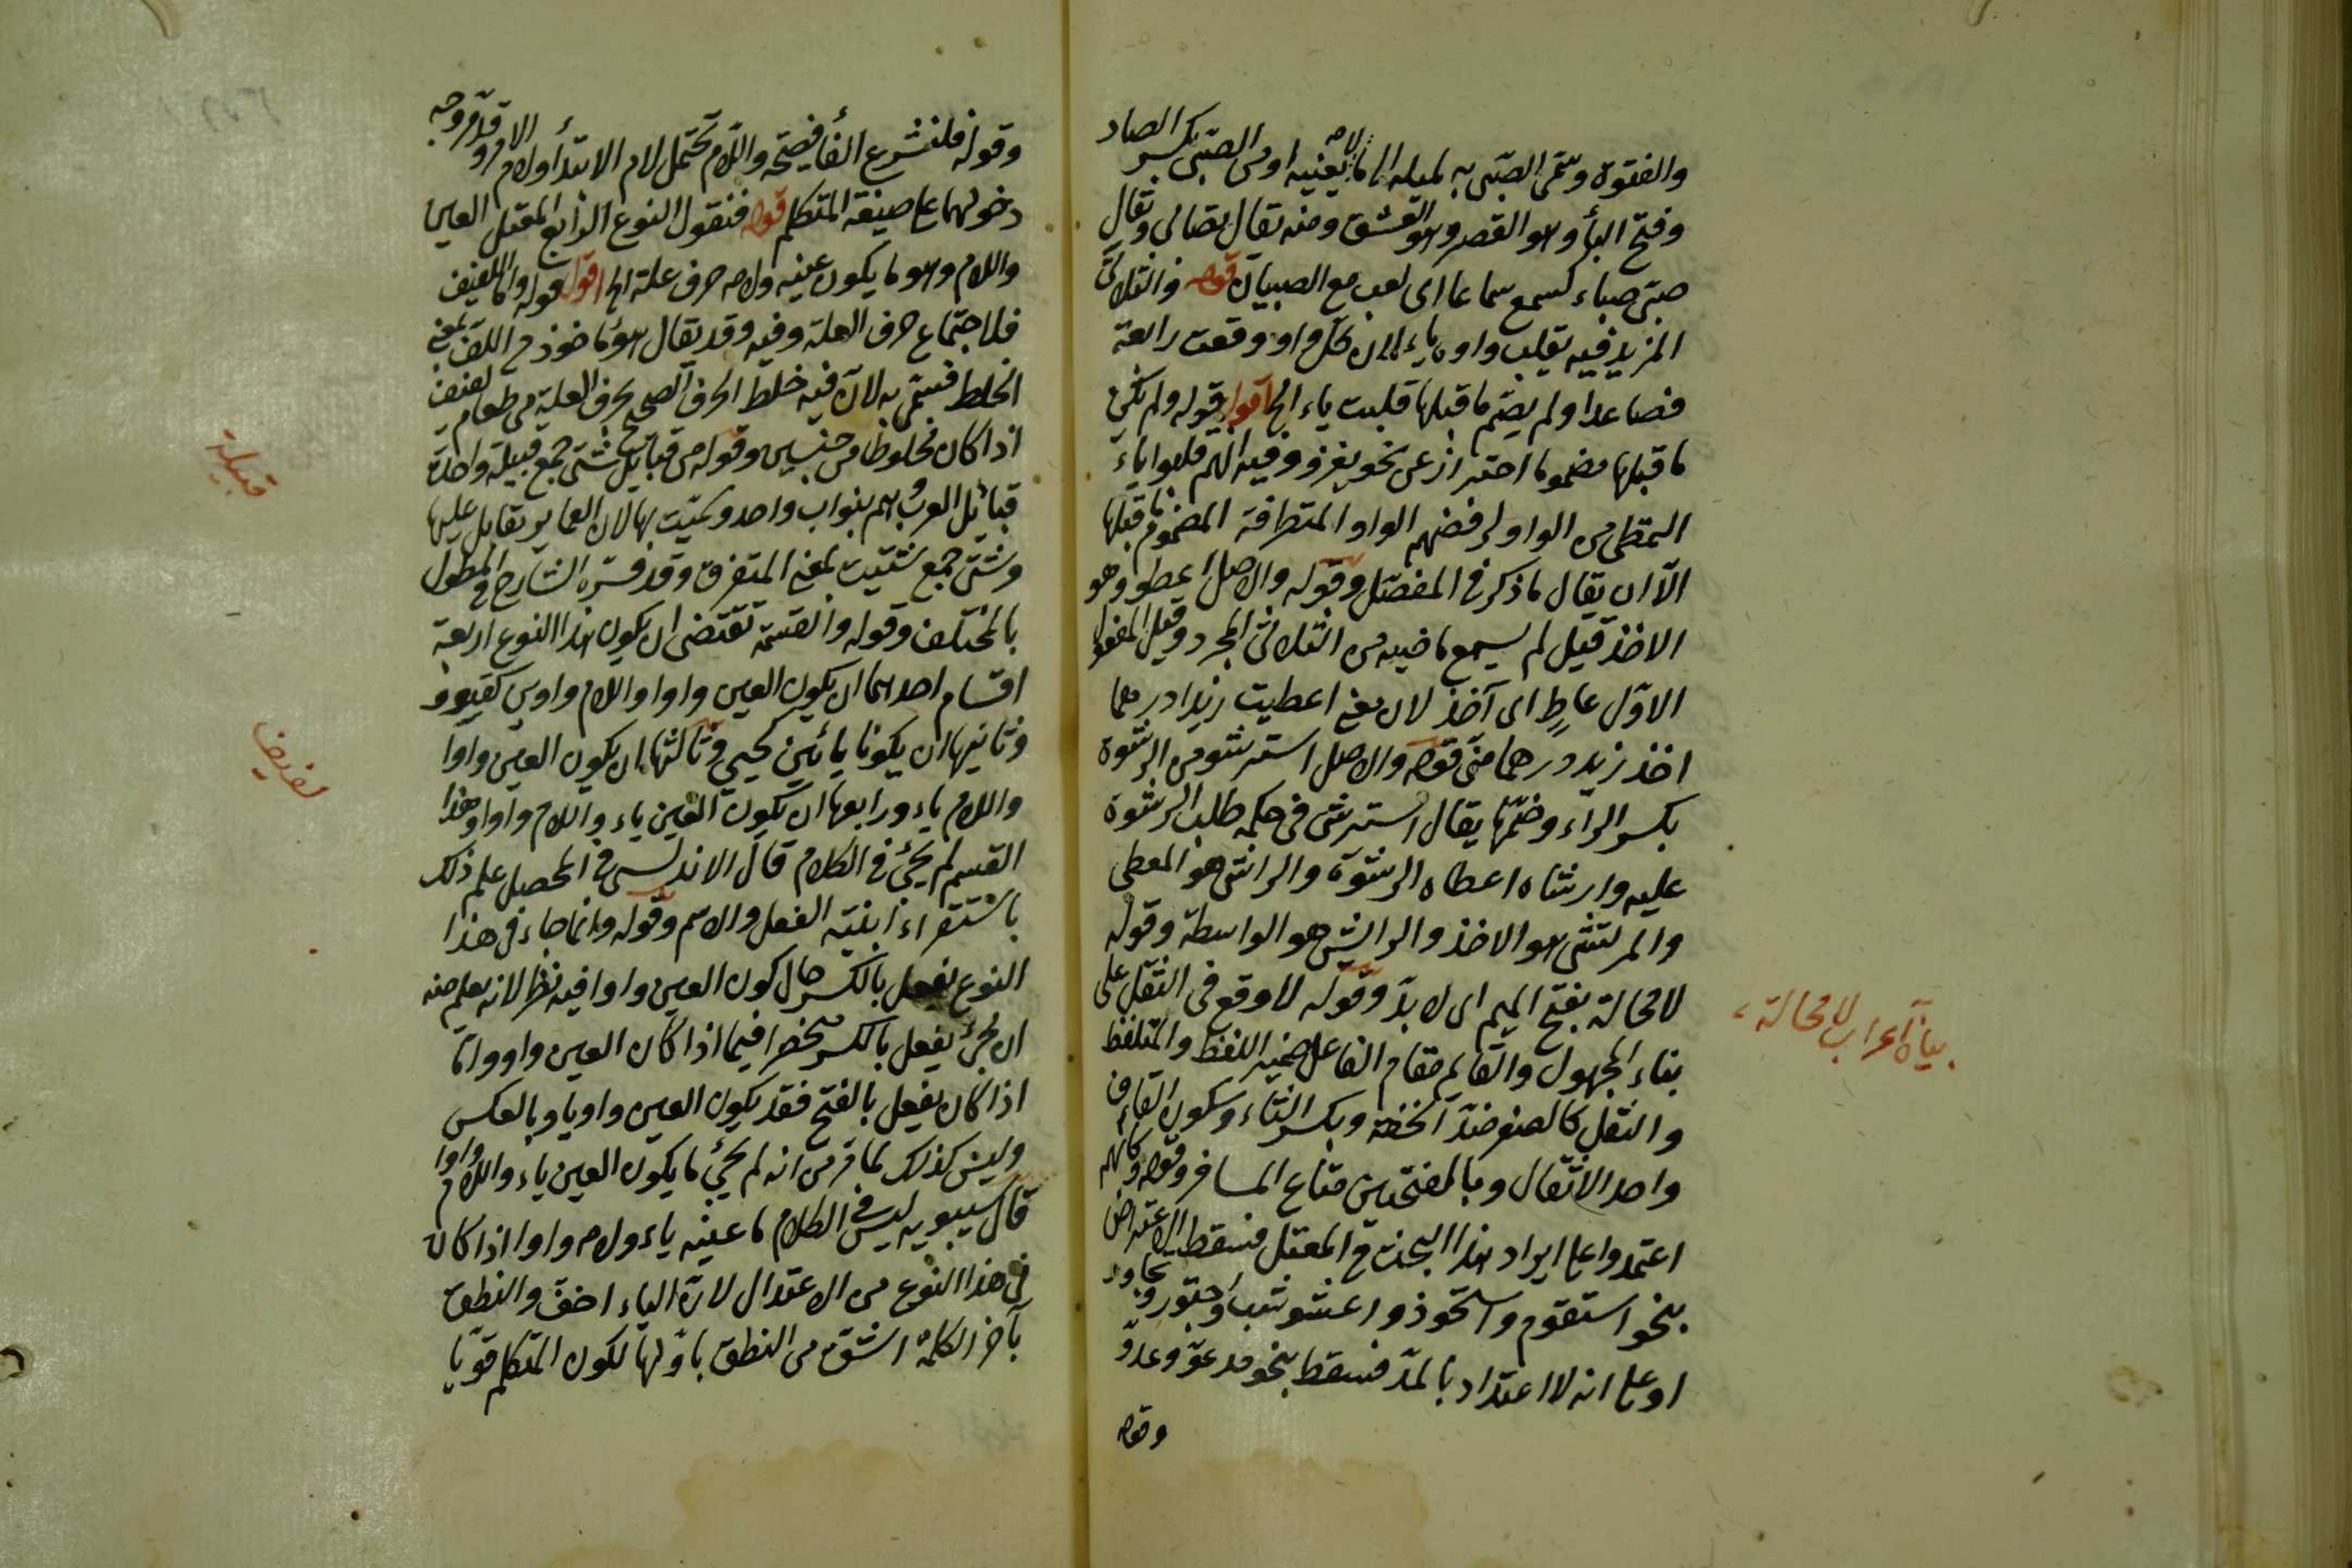 والفتوة وسمى الصبى به لميله الى ما لا يعنيه او من الصبى بكسر الصاد
وفتح الباء وهو القصر وهو التعشق ومنه يقال تصابى ويقال
صبى صباء كسمع سماعا اى لعب مع الصبيان قوله والثلاثى
المزيد فيه يقلب واوه ياء لان كل واو وقعت رابعة
فصاعدا ولم يضم ما قبلها قلبت ياء الخ اقول قوله ولم يكن
ما قبلها مضموما احتراز عن نحو يغزو وفيه انهم قلبوا ياء
التمطى من الواو لرفضهم الواو المتطرفة المضموم ما قبلها
الا ان يقال ما ذكر فى المفصل وقوله والاصل اعطو وهو
الاخذ قيل لم يسمع ماضيه من الثلاثى المجرد وقيل المفعول
الاول عاط اى آخذ لان معنى اعطيت زيدا درهما
اخذ زيد درهما منى قوله والاصل استرشو من الرشوة
بكسر الراء وضمها يقال استرشى فى حكمه طلب الرشوة
عليه وارشاه اعطاه الرشوة والراشى هو المعطى
والمرتشى هو الاخذ والرائش هو الواسطة وقوله
لا محالة بفتح الميم اى لا بد وقوله لا وقع فى الثقل على
بناء المجهول والقائم مقام الفاعل ضمير اللفظ والمتلفظ
والثقل كالصغر ضد الخفة وبكسر الثاء وسكون القاف
واحد الاثقال وبالفتحتين متاع المسافر وقوله وكانهم
اعتمدوا على ايراد هذا البحث فى المعتل فسقط الاعتراض
بنحو استقوم واستحوذ واعشوشب واجتور وتجاور
او على انه لا اعتداد بالمد فسقط بنحو مدعو وعدو
وقوله
بيان اعراب لا محالة
وقوله فلنشرع الفاء فصيحة واللام تحتمل لام الابتداء ولام الامر وقد مر وجه
دخولهما على صيغة المتكلم قوله فنقول النوع الرابع المعتل العين
واللام وهو ما يكون عينه ولامه حرف علة الخ اقول قوله واما اللفيف
فلاجتماع حرف العلة وفيه وقد يقال هو مأخوذ من اللف بمعنى
الخلط فسمى به لان فيه خلط الحرف الصحيح بحرف العلة من طعام لفيف
اذا كان مخلوطا من جنسين وقوله من قبائل شتى جمع قبيلة واحدة
قبائل العرب وهم بنو اب واحد وسميت بها لان العمائر تقابل عليها
وشتى جمع شتيت بمعنى المتفرق وقد فسره الشارح فى المطول
بالمختلف وقوله والقسمة تقتضى ان يكون هذا النوع اربعة
اقسام احداها ان يكون العين واوا واللام واو من كقوو
وثانيها ان يكونا يائين كحيى وثالثها ان يكون العين واوا
واللام ياء ورابعها ان يكون العين ياء واللام واوا وهذا
القسم لم يجئ فى الكلام قال الاندلسى فى المحصل علم ذلك
باستقراء ابنية الفعل والاسم وقوله وانما جاء فى هذا
النوع يفعل بالكسر حال كون العين واوا فيه نظر لانه يعلم منه
ان يجئ يفعل بالكسر منحصر فيما اذا كان العين واو واما
اذا كان يفعل بالفتح فقد يكون العين واو يا وبالعكس
وليس كذلك لما مر من انه لم يجئ ما يكون العين ياء واللام واوا
قال سيبويه ليس فى الكلام ما عينه ياء ولامه واوا اذا كان
فى هذا النوع من الاعتدال لان الياء اخف والنطق
بآخر الكلمة اشق من النطق باولها لكون المتكلم قويا
قبيلة
لفيف